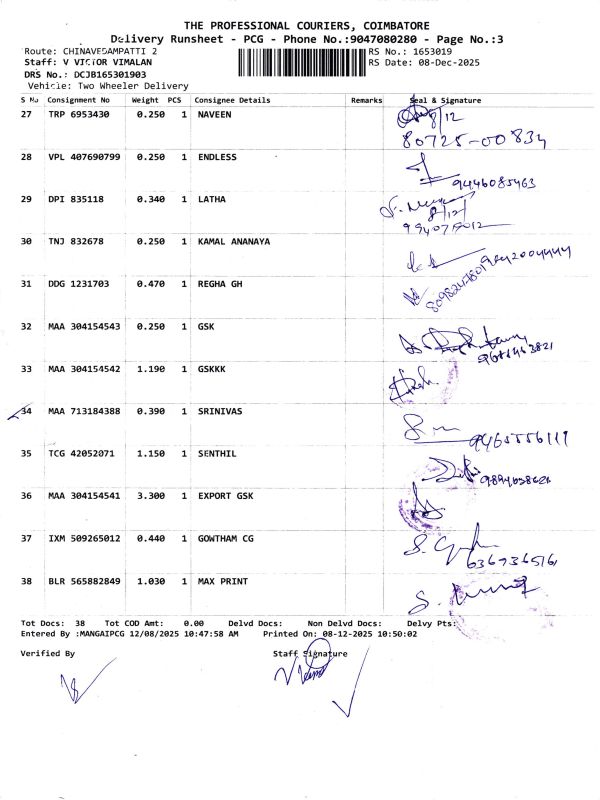 THE PROFESSIONAL COURIERS, COIMBATORE
Delivery Runsheet - PCG - Phone No.:9047080280 - Page No.:3
Route: CHINAVEDAMPATTI 2 RS No.: 1653019
Staff: V VICTOR VIMALAN RS Date: 08-Dec-2025
DRS No.: DCJB165301903
Vehicle: Two Wheeler Delivery
S No Consignment No Weight PCS Consignee Details Remarks Seal & Signature
27 TRP 6953430 0.250 1 NAVEEN
80725-00834
28 VPL 407690799 0.250 1 ENDLESS
9446085463
29 DPI 835118 0.340 1 LATHA
8/12/
30 TNJ 832678 0.250 1 KAMAL ANANAYA
31 DDG 1231703 0.470 1 REGHA GH
32 MAA 304154543 0.250 1 GSK
33 MAA 304154542 1.190 1 GSKKK
34 MAA 713184388 0.390 1 SRINIVAS
35 TCG 42052071 1.150 1 SENTHIL
36 MAA 304154541 3.300 1 EXPORT GSK
37 IXM 509265012 0.440 1 GOWTHAM CG
6367365161
38 BLR 565882849 1.030 1 MAX PRINT
Tot Docs: 38 Tot COD Amt: 0.00 Delvd Docs: Non Delvd Docs: Delvy Pts:
Entered By :MANGAIPCG 12/08/2025 10:47:58 AM Printed On: 08-12-2025 10:50:02
Verified By Staff Signature